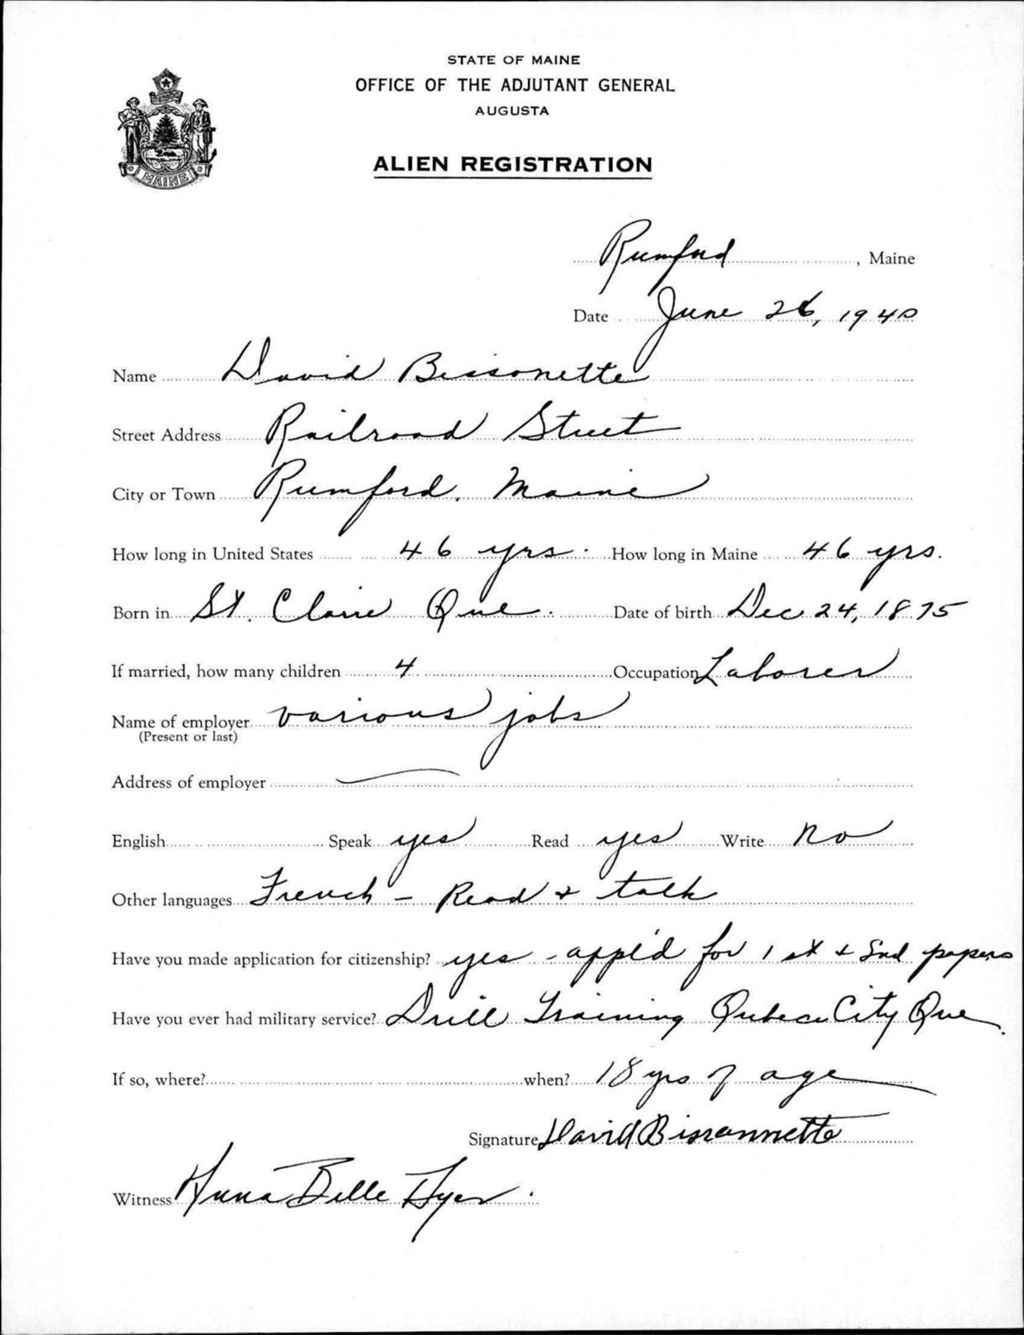 STATE OF MAINE
OFFICE OF THE ADJUTANT GENERAL
AUGUSTA
ALIEN REGISTRATION
MAINE
Rumford, Maine
Date June 26, 1940
Name David Bissonette
Street Address Railroad Street
City or Town Rumford, Maine
How long in United States 46 yrs. How long in Maine 46 yrs.
Born in St. Claire Que. Date of birth Dec 24, 1875
If married, how many children 4 Occupation Laborer
Name of employer various jobs
(Present or last)
Address of employer
English Speak yes Read yes Write No
Other languages French - Read & talk
Have you made application for citizenship? yes - app'd for 1st & 2nd papers
Have you ever had military service? Drill Training Quebec City Que.
If so, where? when? 18 yrs of age
Signature David Bissannette
Witness Anna Belle Dyer.